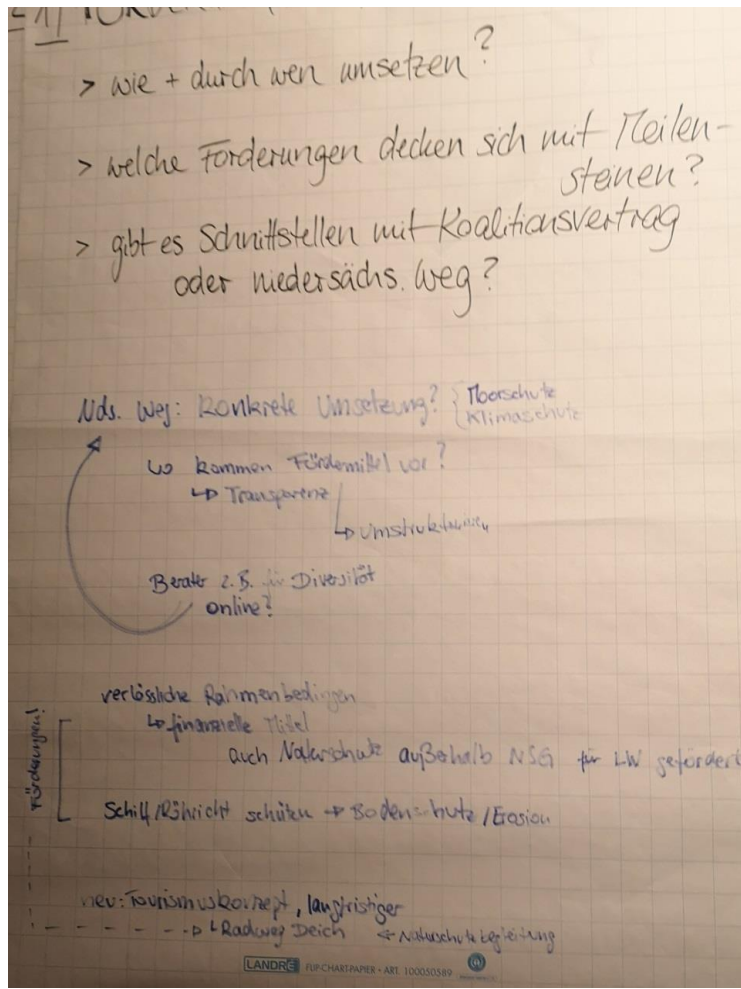 > wie + durch wen umsetzen?
> welche Forderungen decken sich mit Meilen-
steinen?
> gibt es Schnittstellen mit Koalitionsvertrag
oder niedersächs. Weg?
Nds. Weg: konkrete Umsetzung? { Moorschutz
Klimaschutz
wo kommen Fördemittel vor?
↳ Transparenz
↳ Umstrukturieren
Berater z.B. für Diversität
online?
verlässliche Rahmenbedingen
↳ finanzielle Mittel
auch Naturschutz außerhalb NSG für LW gefördert
Förderungen!
Schilf/Röhricht schützen → Bodenschutz/Erosion
neu: Tourismuskonzept, langfristiger
↳ Radweg Deich ← Naturschutzbegleitung
LANDRÉ FLIP-CHART-PAPIER • ART. 100050589